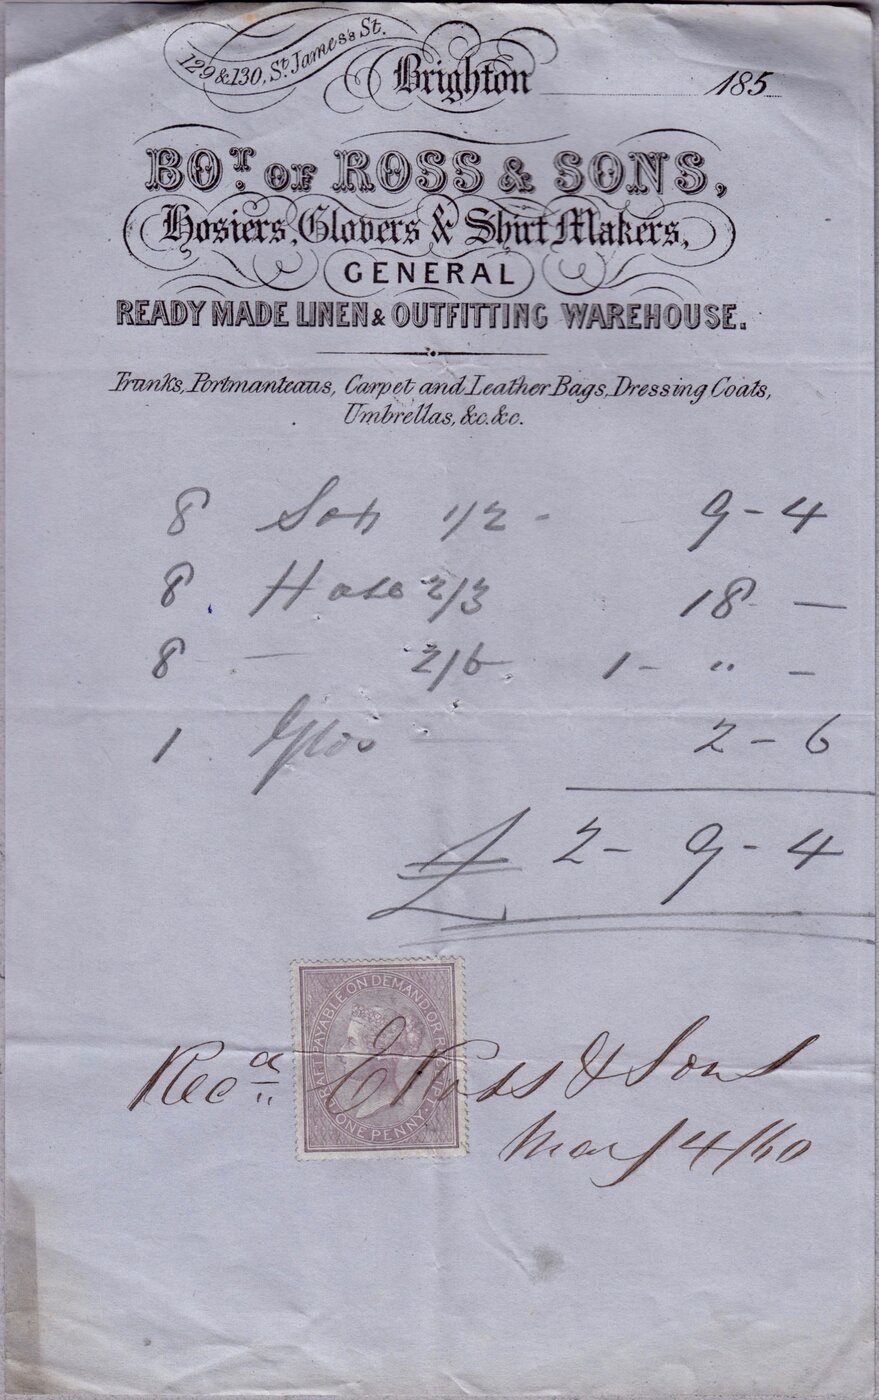 129 & 130, St. James's St. Brighton 185
BOT. OF ROSS & SONS,
Hosiers, Glovers & Shirt Makers,
GENERAL
READY MADE LINEN & OUTFITTING WAREHOUSE.
Trunks, Portmanteaus, Carpet and Leather Bags, Dressing Coats,
Umbrellas, &c. &c.
8 1/2 - 9 - 4
8 Hose 2/3 18 -
8 — 2/6 1 - " -
1 — 2 - 6
£ 2 - 9 - 4
DRAFT PAYABLE ON DEMAND OR RECEIPT
ONE PENNY
Recd E Ross & Sons
May 4/60